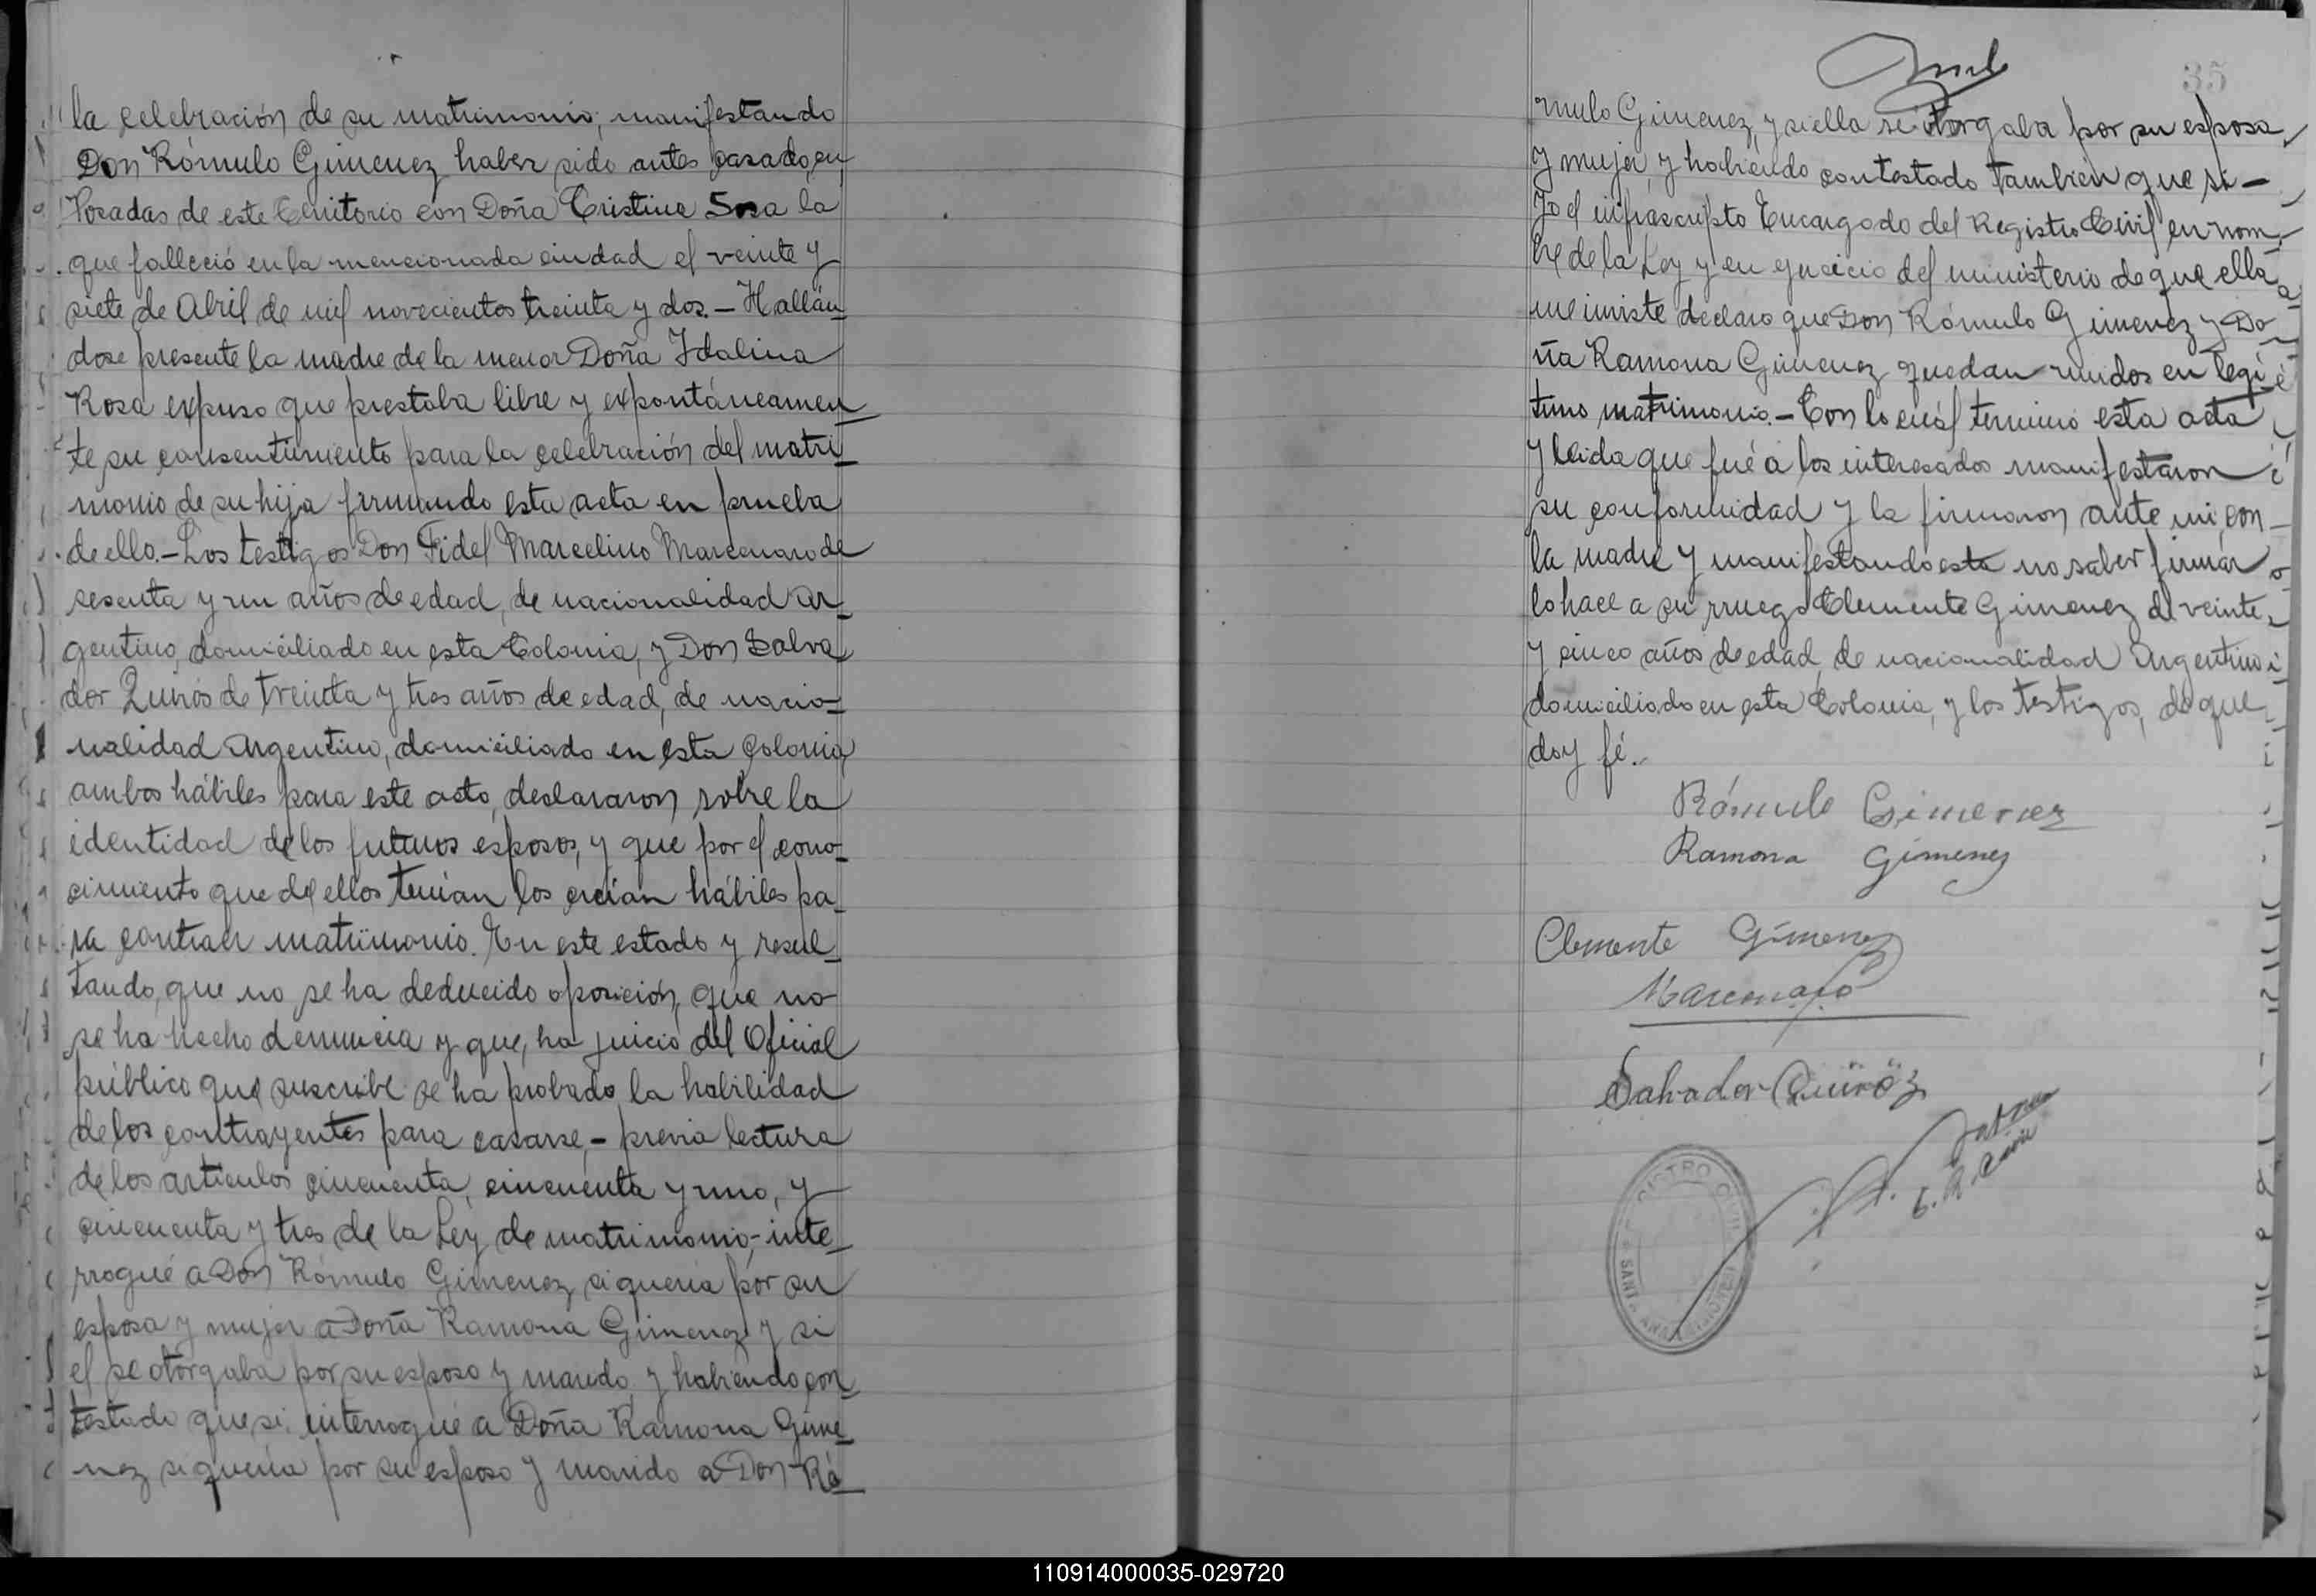 la celebración de su matrimonio; manifestando
Don Rómulo Gimenez haber sido antes casado, en
Posadas de este Territorio con Doña Cristina Sosa la
que falleció en la mencionada ciudad el veinte y
siete de Abril de mil novecientos treinta y dos. - Hallán
dose presente la madre de la menor Doña Idalina
Rosa expuso que prestaba libre y expontáneamen
te su consentimiento para la celebración del matri
monio de su hija firmando esta acta en prueba
de ello. - Los testigos Don Fidel Marcelino Marcenaro de
sesenta y un años de edad, de nacionalidad Ar
gentino, domiciliado en esta Colonia, y Don Salva
dor Quirós de treinta y tres años de edad, de nacio
nalidad Argentino, domiciliado en esta Colonia
ambos hábiles para este acto, declararon sobre la
identidad de los futuros esposos, y que por el cono
cimiento que de ellos tenían los creían hábiles pa
ra contraer matrimonio. En este estado y resul
tando, que no se ha deducido oposición, que no
se ha hecho denuncia y que, ha juicio del Oficial
público que suscribe se ha probado la habilidad
de los contrayentes para casarse, - previa lectura
de los artículos cincuenta, cincuenta y uno, y
cincuenta y tres de la Ley de matrimonio, - inte
rrogué a Don Rómulo Gimenez si quería por su
esposa y mujer a Doña Ramona Gimenez y si
el se otorgaba por su esposo y marido y habiendo con
testado que si, interrogué a Doña Ramona Gime
nez si quería por su esposo y marido a Don Ró
35
mulo Gimenez, y si ella se otorgaba por su esposa
y mujer y habiendo contestado también que si -
Yo el infrascripto Encargado del Registro Civil en nom
bre de la Ley y en ejercicio del ministerio de que ella
me inviste declaro que Don Rómulo Gimenez y Do
ña Ramona Gimenez quedan unidos en legí
timo matrimonio. - Con lo cuál termino esta acta
y leida que fué a los interesados manifestaron
su conformidad y la firmaron ante mi, con
la madre y manifestando esta no saber firmar
lo hace a su rruego Clemente Gimenez de veinte
y cinco años de edad, de nacionalidad Argentino
domiciliado en esta Colonia, y los testigos, de que
doy fé.
Rómulo Gimenez
Ramona Gimenez
Clemente Gimenez
Marcenaro
Salvador Quiróz
REGISTRO CIVIL
SANTA ANA (MISIONES)
110914000035-029720